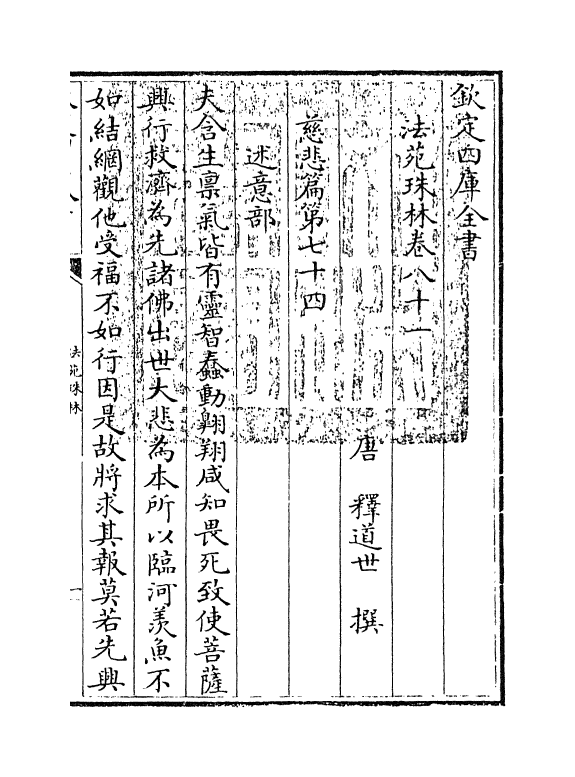 欽定四庫全書
法苑珠林卷八十一
唐 釋道世 撰
慈悲篇第七十四
述意部
夫含生禀氣皆有靈智蠢動翾翔咸知畏死致使菩薩
興行救濟為先諸佛出世大悲為本所以臨河羨魚不
如結網觀他受福不如行因是故將求其報莫若先興
法苑珠林
一